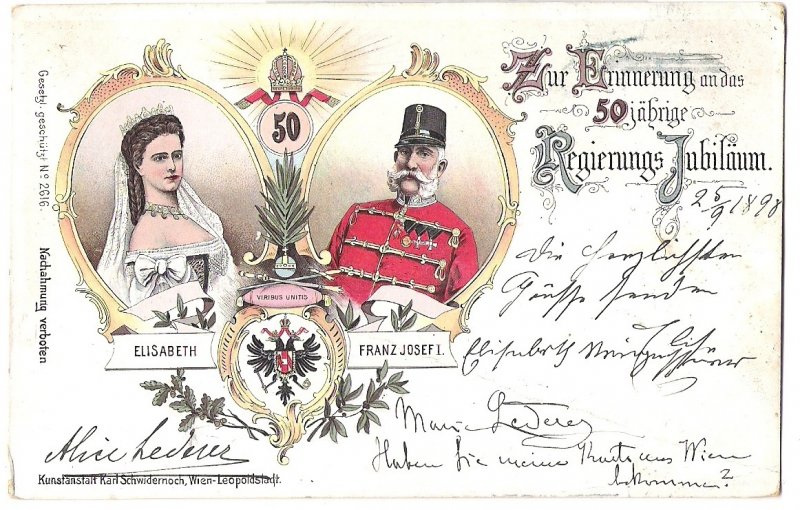 Gesetzl. geschützt No 2616.
Nachahmung verboten
50
VIRIBUS UNITIS
ELISABETH
FRANZ JOSEF I.
Zur Erinnerung an das
50 jährige
Regierungs Jubiläum.
25/9 1898
Die herzlichsten
Grüße senden
Elisabeth
Marie Lederer
Haben Sie meine Karte aus Wien
bekommen?
Alice Lederer
Kunstanstalt Karl Schwidernoch, Wien-Leopoldstadt.